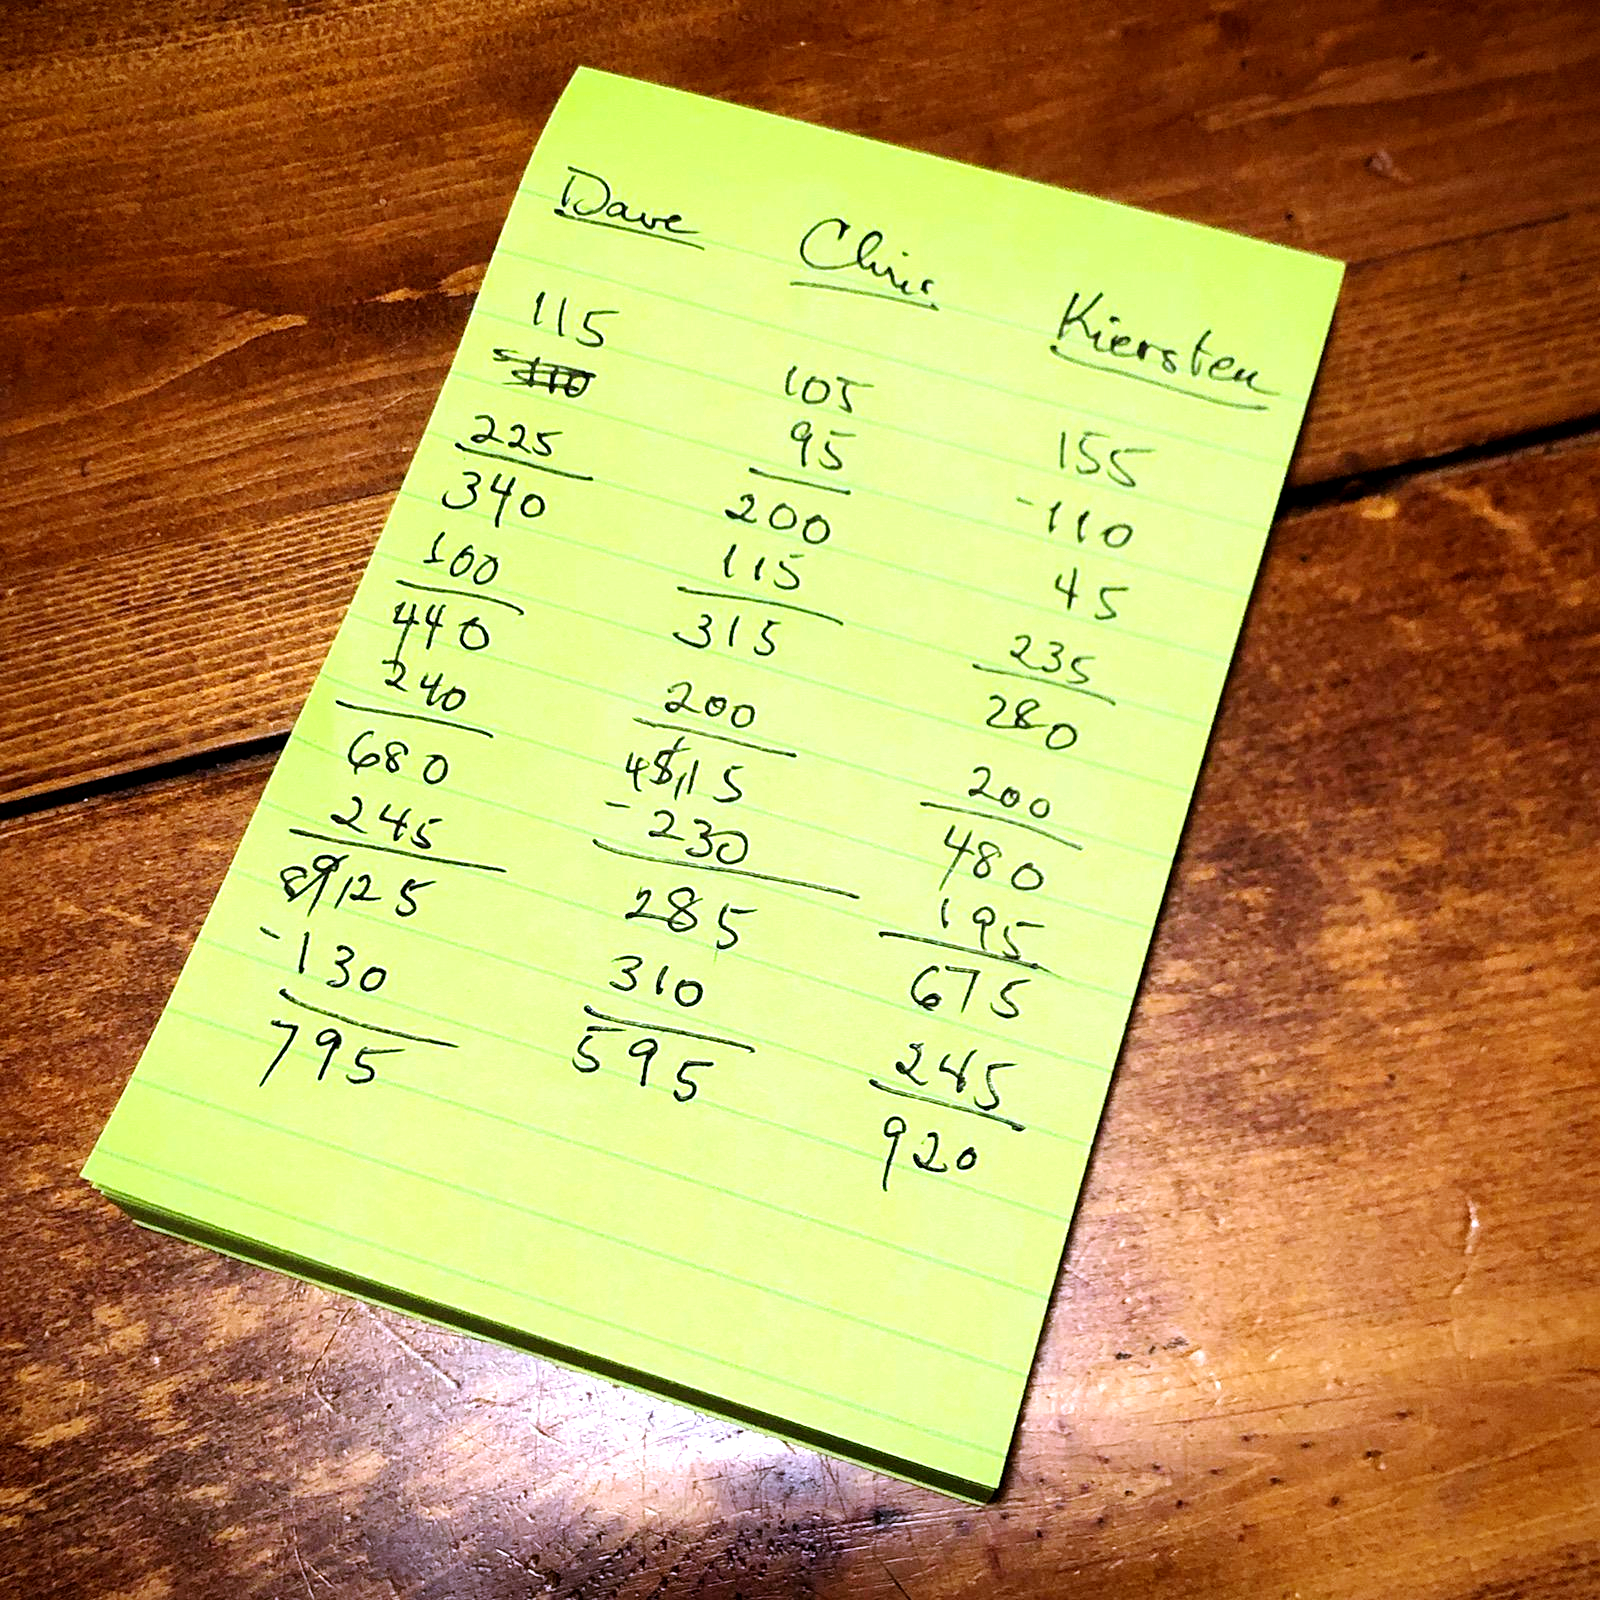 Dave Chris Kiersten
115
225
340
100
440
240
680
245
89125
-130
795
105
95
200
115
315
200
45115
-230
285
310
595
155
-110
45
235
280
200
480
195
675
245
920